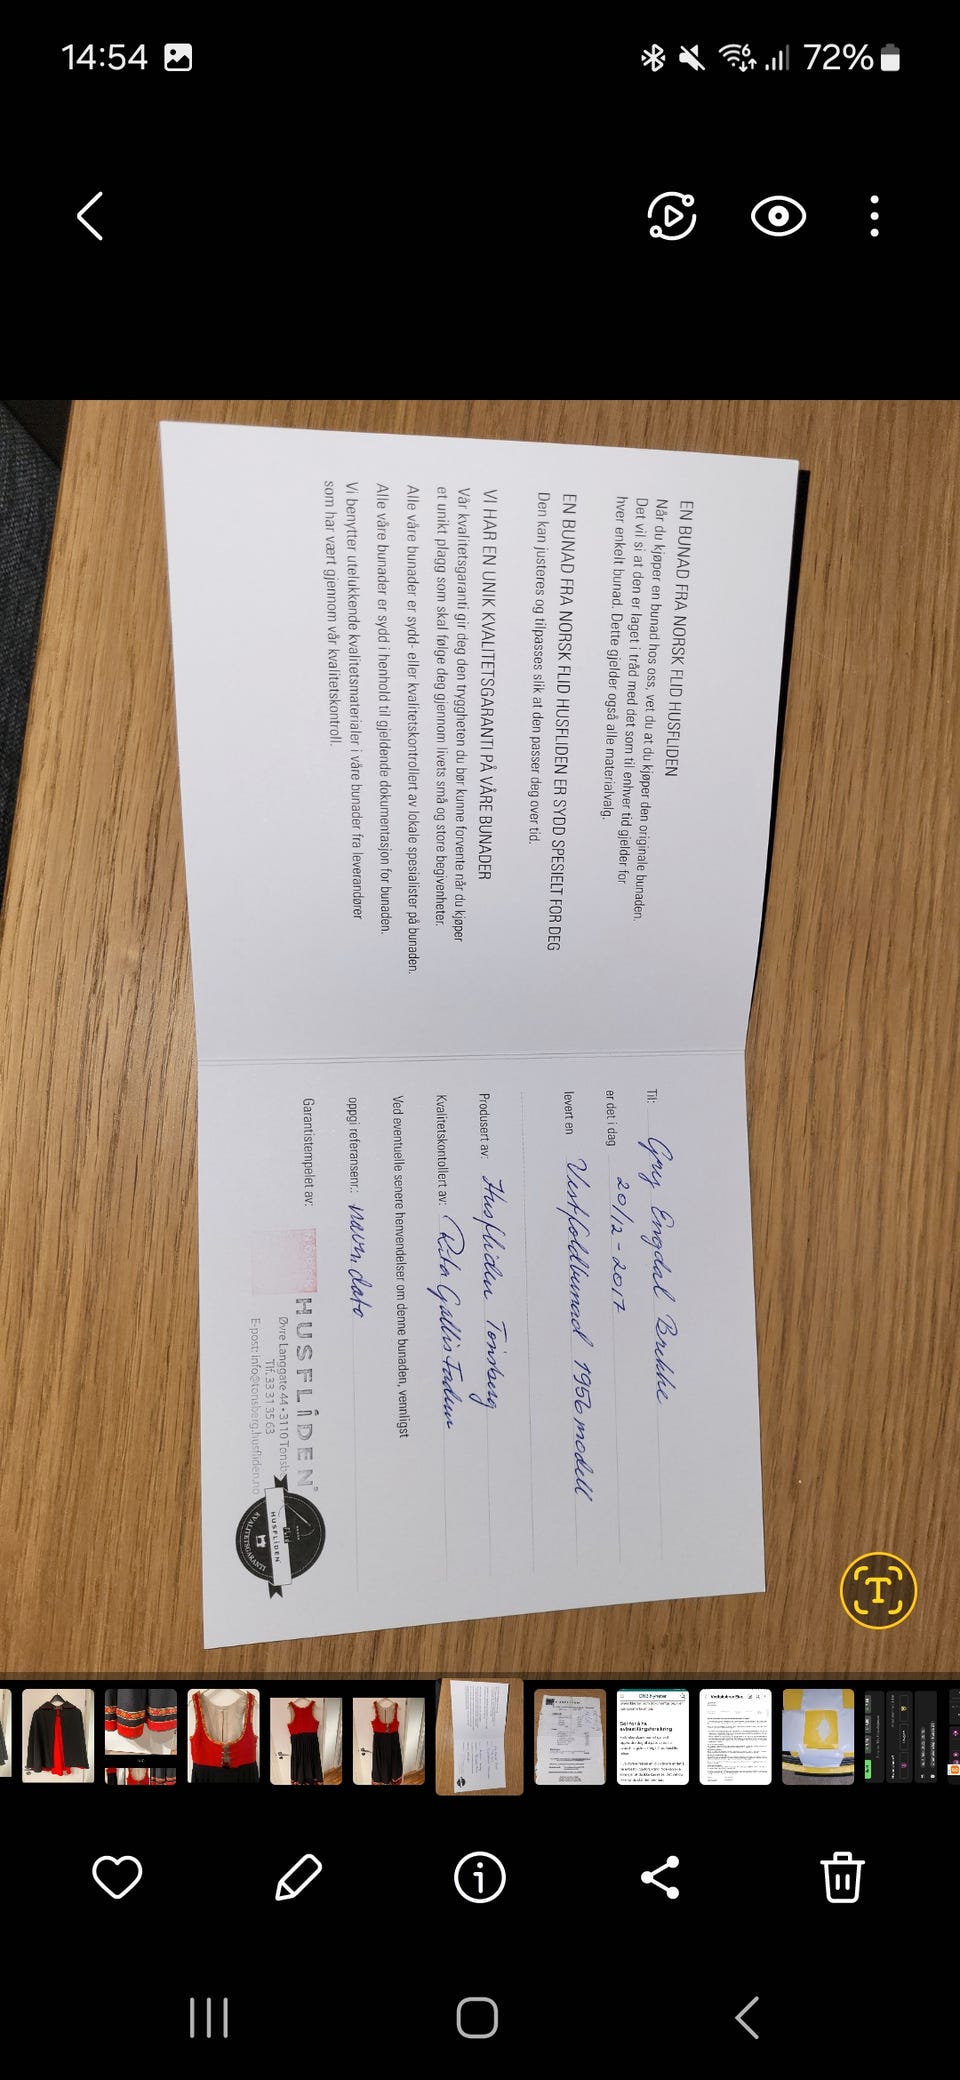 14:54
72%
EN BUNAD FRA NORSK FLID HUSFLIDEN
Når du kjøper en bunad hos oss, vet du at du kjøper den originale bunaden.
Det vil si at den er laget i tråd med det som til enhver tid gjelder for
hver enkelt bunad. Dette gjelder også alle materialvalg.
EN BUNAD FRA NORSK FLID HUSFLIDEN ER SYDD SPESIELT FOR DEG
Den kan justeres og tilpasses slik at den passer deg over tid.
VI HAR EN UNIK KVALITETSGARANTI PÅ VÅRE BUNADER
Vår kvalitetsgaranti gir deg den tryggheten du bør kunne forvente når du kjøper
et unikt plagg som skal følge deg gjennom livets små og store begivenheter.
Alle våre bunader er sydd- eller kvalitetskontrollert av lokale spesialister på bunaden.
Alle våre bunader er sydd i henhold til gjeldende dokumentasjon for bunaden.
Vi benytter utelukkende kvalitetsmaterialer i våre bunader fra leverandører
som har vært gjennom vår kvalitetskontroll.
Til: Gry Engdal Brekke
er det i dag 20/12-2017
levert en Vestfoldbunad 1956 modell
Produsert av: Husfliden Tønsberg
Kvalitetskontollert av: Rita Gallis
Ved eventuelle senere henvendelser om denne bunaden, vennligst
oppgi referansenr.: navn, dato
Garantistempelet av:
HUSFLIDEN
Øvre Langgate 44 • 3110 Tønsb
Tlf. 33 31 35 63
E-post: info@tonsberg.husfliden.no
HUSFLIDEN
KVALITETSGARANTI
T